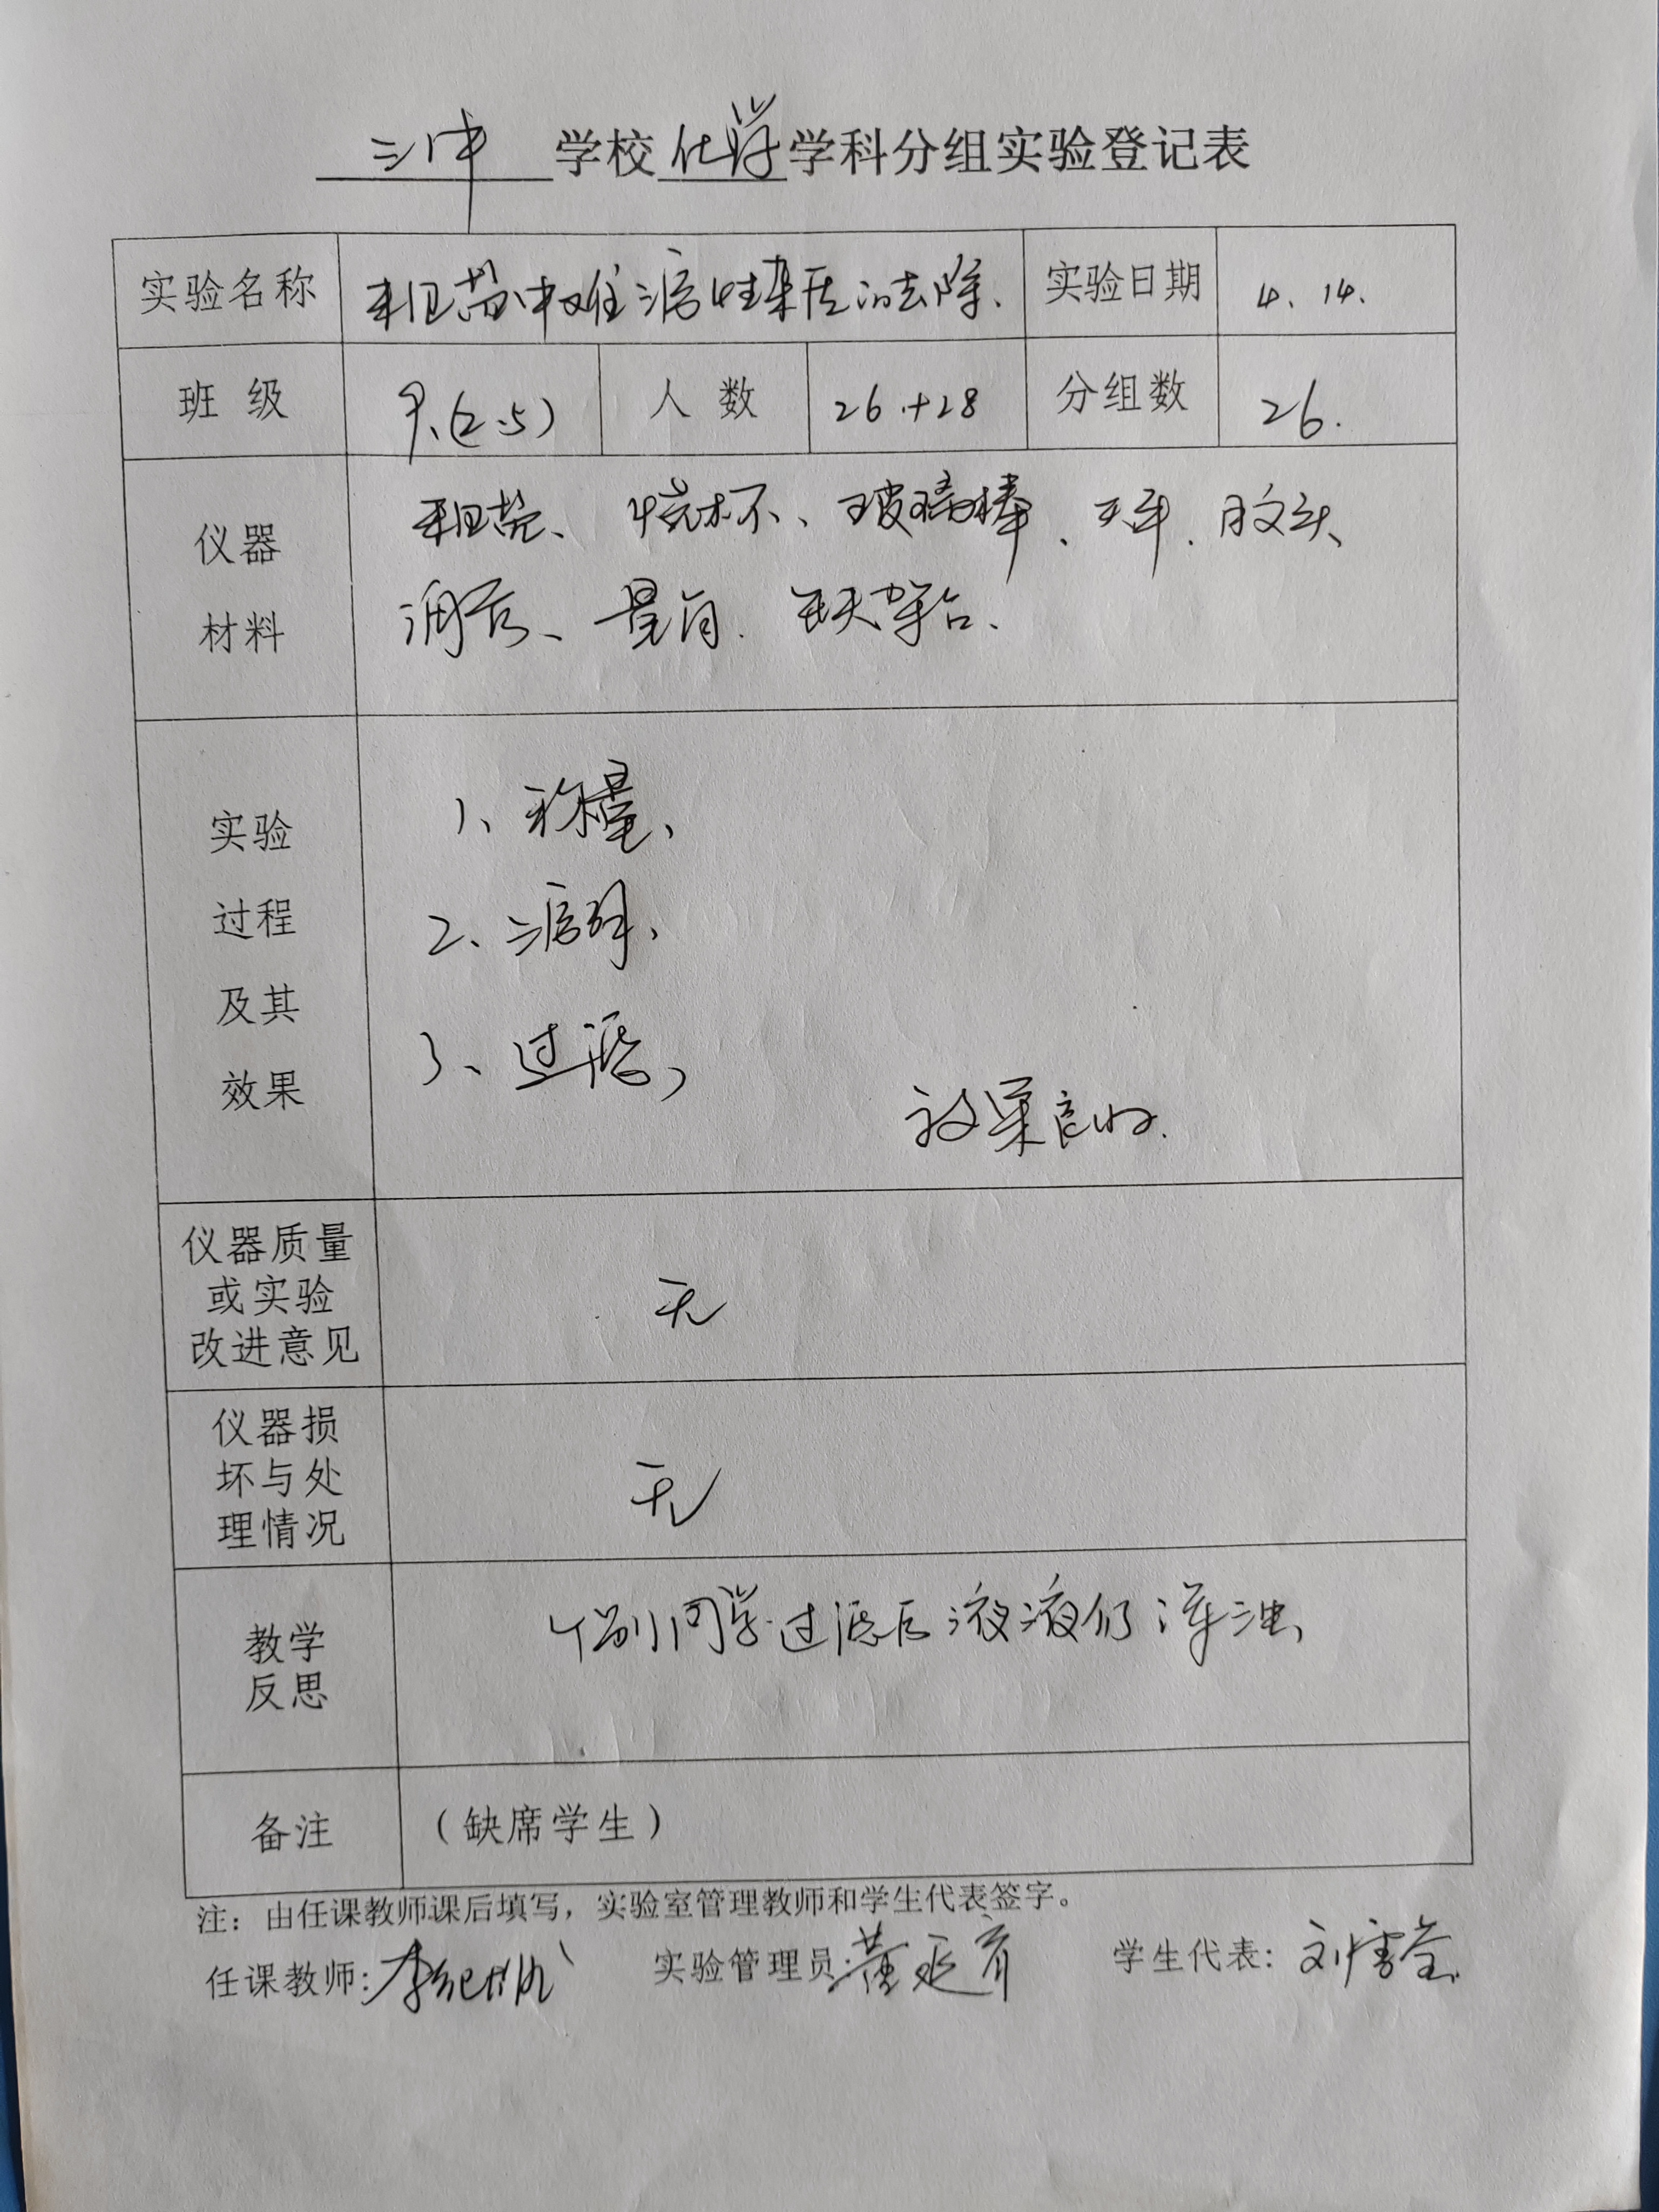 三中 学校 化学 学科分组实验登记表
实验名称 粗盐中难溶性杂质的去除. 实验日期 4. 14.
班 级 九(2.5) 人 数 26+28 分组数 26.
仪器 粗盐、烧杯、玻璃棒、天平、胶头、
材料 漏斗、量筒. 铁架台.
实验
过程
及其
效果
1、称量、
2、溶解、
3、过滤,
效果良好.
仪器质量
或实验
改进意见
无
仪器损
坏与处
理情况
无
教学
反思
个别同学过滤后液液仍浑浊、
备注 (缺席学生)
注：由任课教师课后填写，实验室管理教师和学生代表签字。
任课教师: 实验管理员: 黄延育 学生代表: 刘